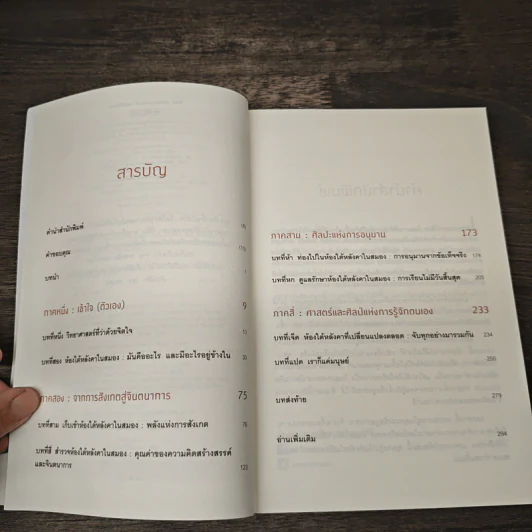 สารบัญ
คำนำสำนักพิมพ์
คำขอบคุณ
บทนำ
ภาคหนึ่ง : เข้าใจ (ตัวเอง) 9
บทที่หนึ่ง วิทยาศาสตร์ที่ว่าด้วยจิตใจ 11
บทที่สอง ห้องใต้หลังคาในสมอง : มันคืออะไร และมีอะไรอยู่ข้างใน
ภาคสอง : จากการสังเกตสู่จินตนาการ 75
บทที่สาม เก็บเข้าห้องใต้หลังคาในสมอง : พลังแห่งการสังเกต 76
บทที่สี่ สำรวจห้องใต้หลังคาในสมอง : คุณค่าของความคิดสร้างสรรค์
และจินตนาการ 123
ภาคสาม : ศิลปะแห่งการอนุมาน 173
บทที่ห้า ท่องไปในห้องใต้หลังคาในสมอง การอนุมานจากข้อเท็จจริง 174
บทที่หก ดูแลรักษาห้องใต้หลังคาในสมอง : การเรียนไม่มีวันสิ้นสุด
ภาคสี่ : ศาสตร์และศิลป์แห่งการรู้จักตนเอง 233
บทที่เจ็ด ห้องใต้หลังคาที่เปลี่ยนแปลงตลอด : จับทุกอย่างมารวมกัน 234
บทที่แปด เราก็แค่มนุษย์
บทส่งท้าย
อ่านเพิ่มเติม 294